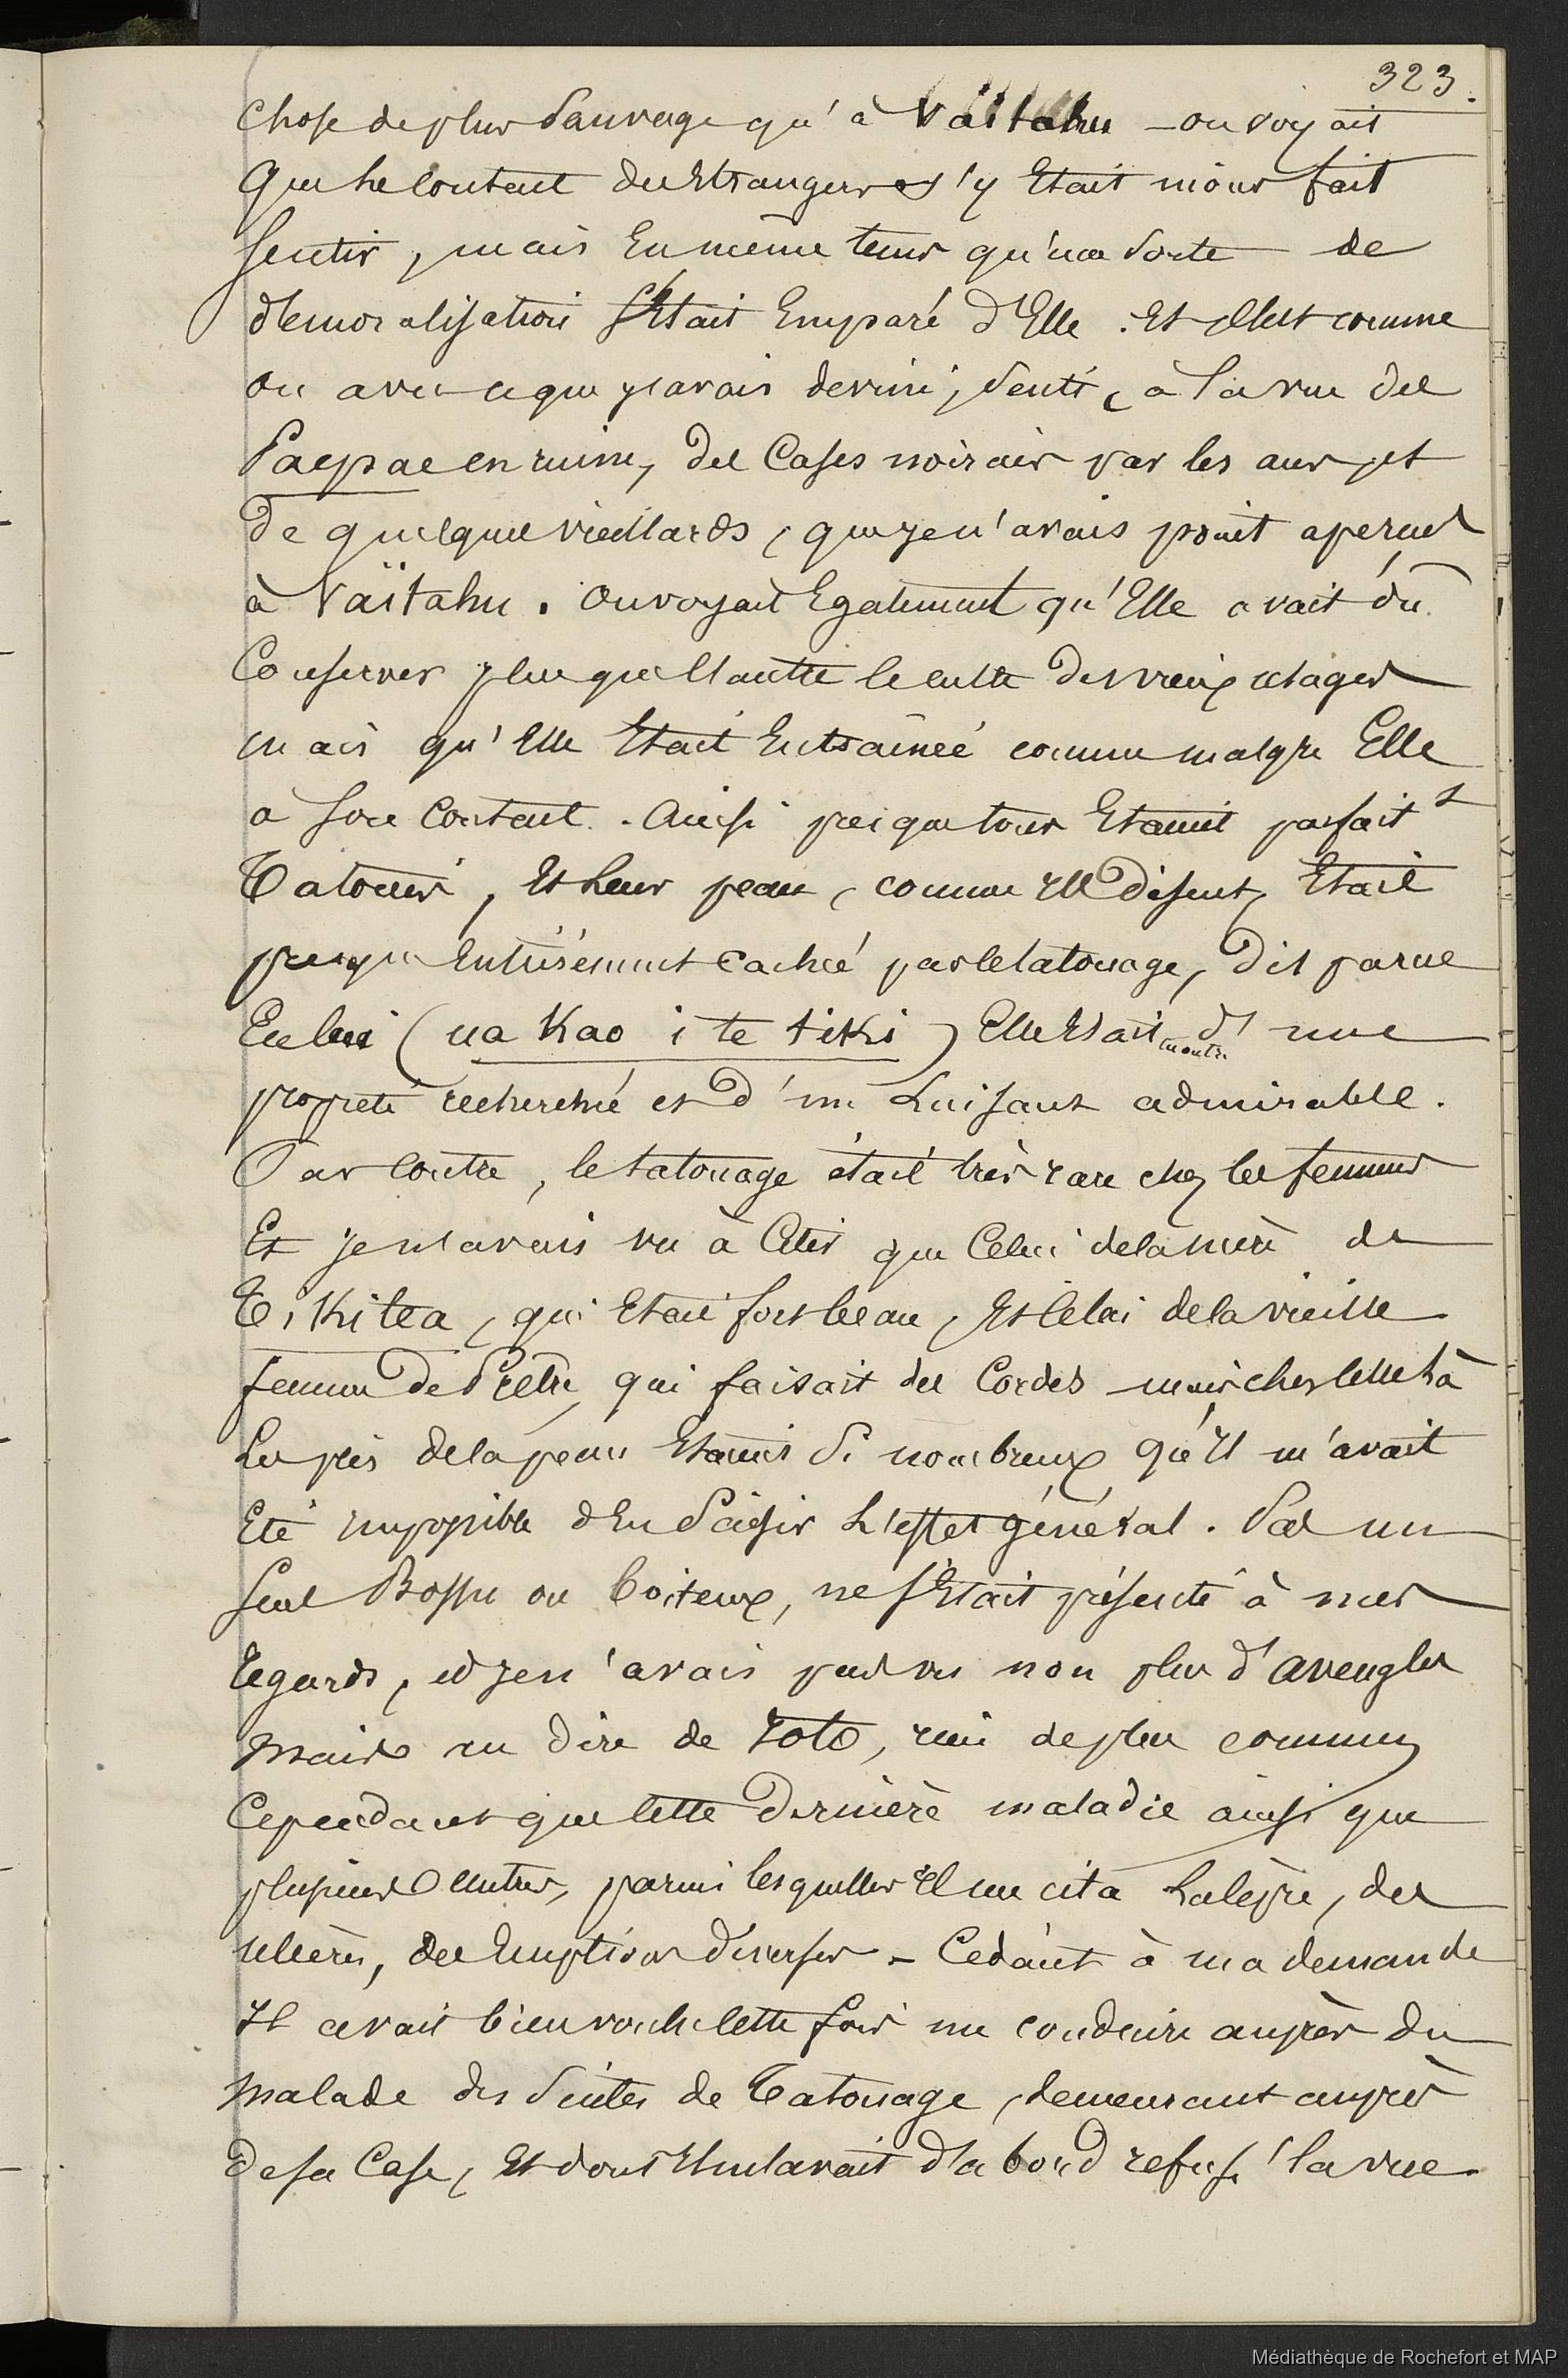 323.
Chose de plus Sauvage qu'à Vaïtahu – on voyait
que le contact des Etrangers s'y Etait moins fait
sentir, mais En même tems qu'une sorte de
démoralisation s'Etait Emparé d'Elle. Et c'est comme
on avec ce que j'avais deviné, senti, à la vue des
Paepae en ruine, des Cases noircies par les ans, et
de quelques vieillards, que je n'avais point aperçus
à Vaïtahu. On voyait Egalement qu'Elle avait dû
Conserver plus que l'autre le culte des vieux usages
mais qu'Elle Etait Entrainée comme malgré Elle
à son Contact. Ainsi presque tous Etaient parfait^t
Tatoués, Et leur peau, comme ils disent, Etait
presque Entièrement cachée par le tatouage, dit parue
En lui (ua Kao i te tiki) Elle Etait montr. d'une
propreté recherchée et d'un Luisant admirable.
Par Contre, le tatouage était très rare chez les femmes
Et je n'avais vu à Cités que Celui de la mère de
Tikitea, qui Etait fort beau, Et Celui de la vieille
femme de Prêtre, qui faisait des Cordes – mais chez Celle là
Les plis de la peau Etaient Si nombreux qu'Il m'avait
Eté impossible d'En Saisir L'effet général. Pas un
seul Bossu ou boiteux, ne s'Etait présenté à mes
regards, et je n'avais pas vu non plus d'aveugles
Mais au dire de Toto, rien de plus commun
Cependant que Cette dernière maladie ainsi que
plusieurs autres, parmi lesquelles Il me cita La lèpre, des
ulcères, des Eruptions diverses – Cédant à ma demande
Il avait bien voulu Cette fois me conduire auprès du
Malade des Suites de Tatouage, demeurant auprès
de sa Case, Et dont Il m'avait d'abord refusé la vue.
Médiathèque de Rochefort et MAP